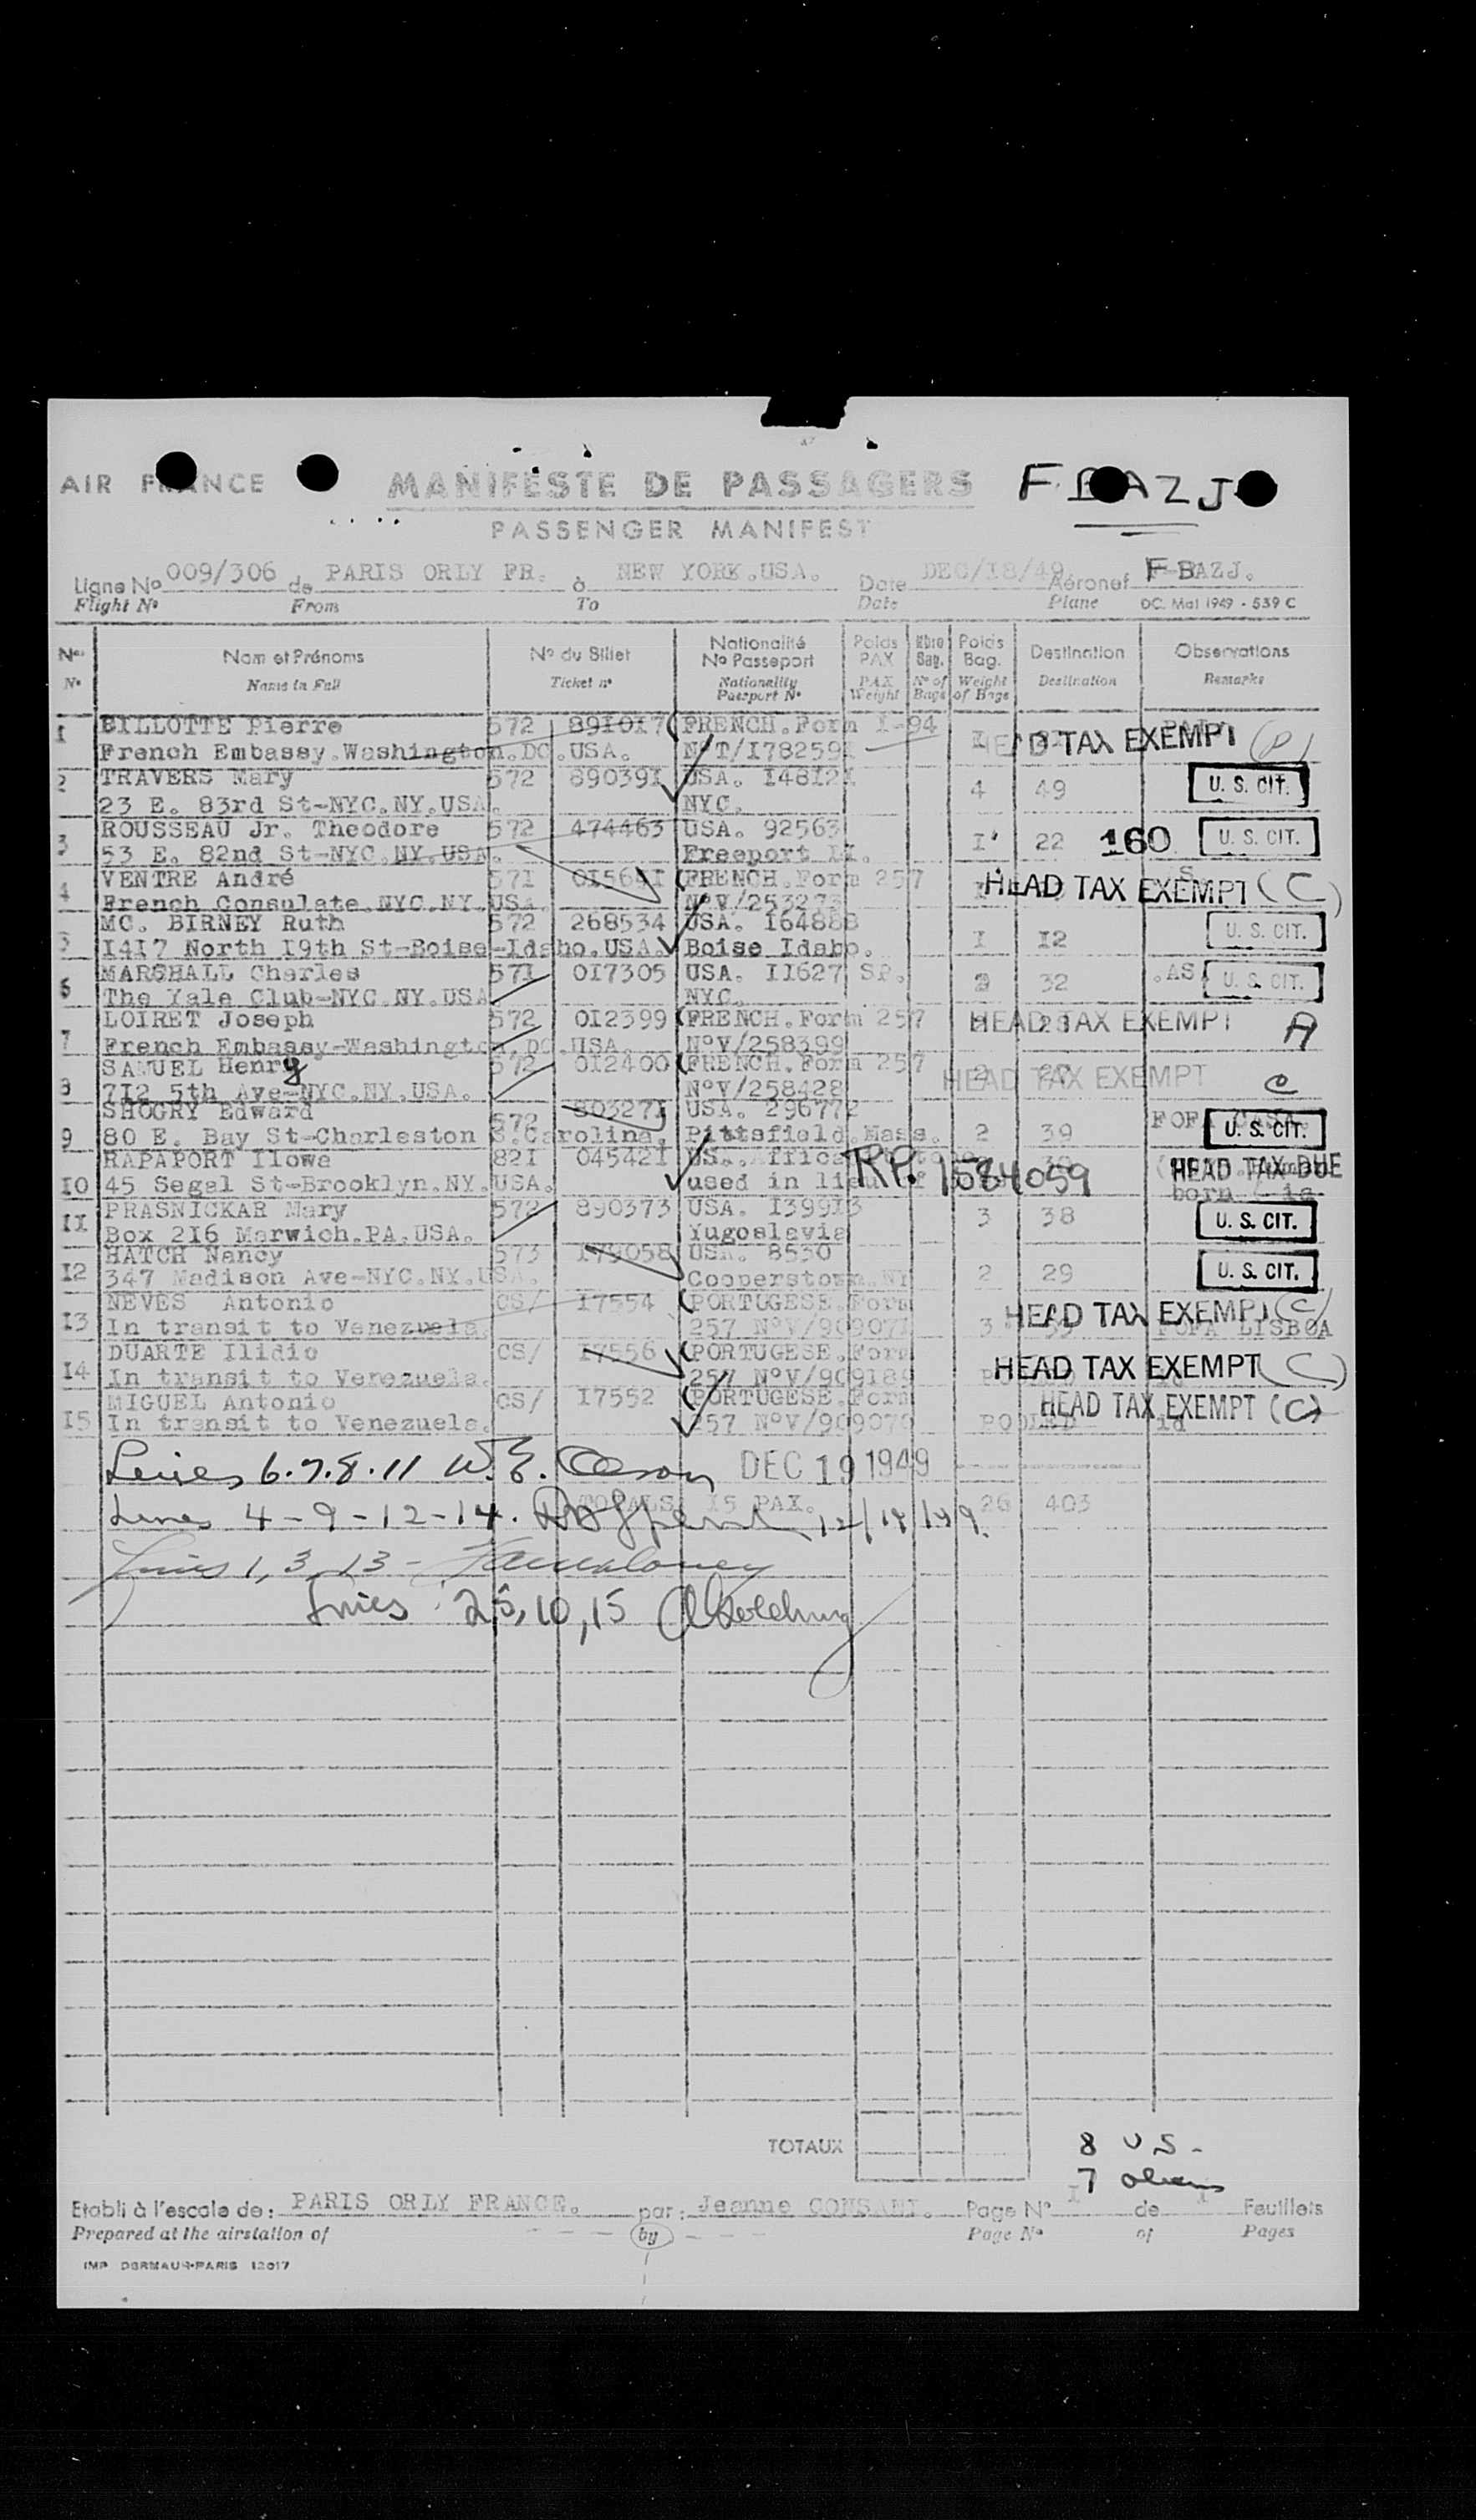 AIR FRANCE MANIFESTE DE PASSAGERS F BAZJ
PASSENGER MANIFEST
Ligne No 009/306 de PARIS ORLY FR. à NEW YORK.USA. Date DEC/18/49 Aéronef F-BAZJ.
Flight No From To Date Plane OC. Mat 1949 - 539 C
Nos Nom et Prénoms No du Billet Nationalité No Passeport Poids PAX Nbre Bag. Poids Bag. Destination Observations
No Name in Full Ticket no Nationality Passport No PAX Weight No of Bags Weight of Bags Destination Remarks
1 BILLOTTE Pierre 572 891017 (FRENCH.Form I-94
French Embassy.Washington.DC.USA. NoT/178259 I HEAD TAX EXEMPT (P)
2 TRAVERS Mary 572 890391 USA. 14812
23 E. 83rd St-NYC.NY.USA. NYC. 4 49 U. S. CIT.
3 ROUSSEAU Jr. Theodore 572 474463 USA. 92563
53 E. 82nd St-NYC.NY.USA. Freeport I 22 160 U. S. CIT.
4 VENTRE André 571 015641 (FRENCH.Form 257
French Consulate.NYC.NY.USA. NoV/253273 HEAD TAX EXEMPT (C)
5 MC. BIRNEY Ruth 572 268534 USA. 164888
1417 North 19th St-Boise-Idaho.USA. Boise Idaho. I 12 U. S. CIT.
6 MARSHALL Charles 571 017305 USA. 11627 SP.
The Yale Club-NYC.NY.USA. NYC. 32 U. S. CIT.
7 LOIRET Joseph 572 012399 (FRENCH.Form 257 HEAD TAX EXEMPT A
French Embassy-Washington.DC.USA. NoV/258399
8 SAMUEL Henry 572 012400 (FRENCH.Form 257 2 HEAD TAX EXEMPT C
712 5th Ave-NYC.NY.USA. NoV/258428
9 SHOGRY Edward 572 803271 USA. 296772
80 E. Bay St-Charleston S.Carolina. Pittsfield.Mass. 2 39 U. S. CIT.
10 RAPAPORT Ilowa 821 045421 USA. RP. 1584059 HEAD TAX DUE
45 Segal St-Brooklyn.NY.USA. used in lieu born
11 PRASNICKAR Mary 572 890373 USA. 139913
Box 216 Marwich.PA.USA. Yugoslavia 3 38 U. S. CIT.
12 HATCH Nancy 573 179058 USA. 8530
347 Madison Ave-NYC.NY.USA. Cooperstown.NY 2 29 U. S. CIT.
13 NEVES Antonio CS/ 17554 (PORTUGESE.Form HEAD TAX EXEMPT (C)
In transit to Venezuela. 257 NoV/909071 3 FOFA LISBOA
14 DUARTE Ilidio CS/ 17556 (PORTUGESE.Form HEAD TAX EXEMPT (C)
In transit to Venezuela. 257 NoV/909189
15 MIGUEL Antonio CS/ 17552 (PORTUGESE.Form HEAD TAX EXEMPT (C)
In transit to Venezuela. 257 NoV/909070 POOLED id
Lines 6.7.8.11 W.E. DEC 19 1949
TOTALS 15 PAX. 26 403
Lines 4-9-12-14. 12/19/49.
Lines 1, 3, 13 -
Lines 2, 5, 10, 15
TOTAUX
8 US-
7 aliens
Etabli à l'escale de: PARIS ORLY FRANCE. par: Jeanne CONSANI. Page No I de I Feuillets
Prepared at the airstation of by Page No of Pages
IMP DERMAUX-PARIS 12017